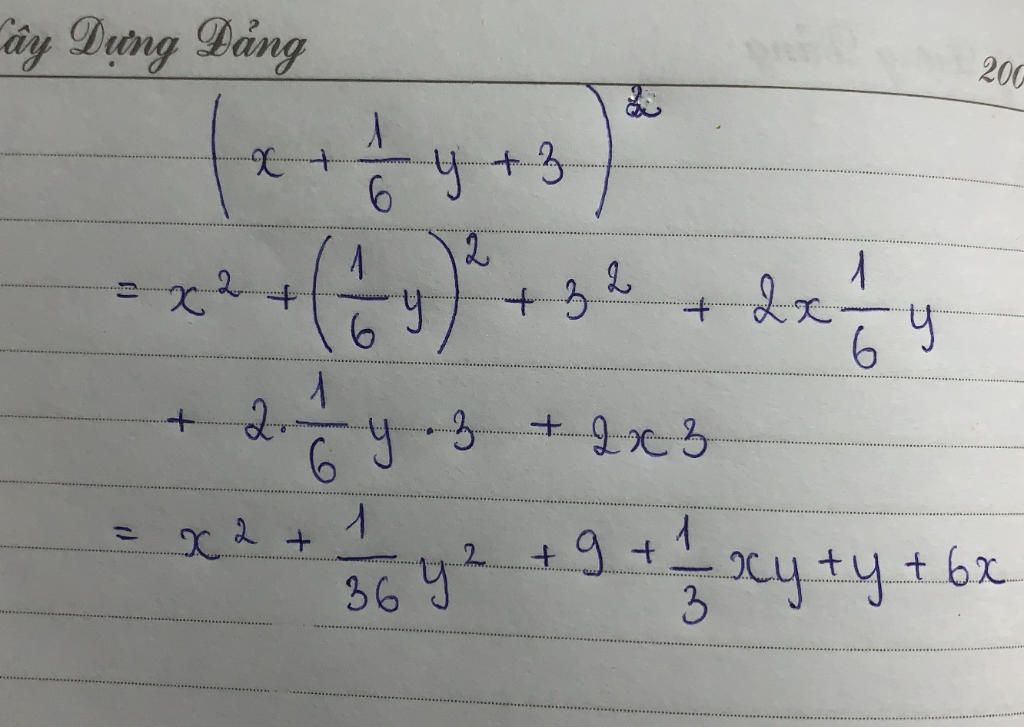 Xây Dựng Đảng
200
(x + 1/6 y + 3)²
= x² + (1/6 y)² + 3² + 2x 1/6 y
+ 2. 1/6 y . 3 + 2x3
= x² + 1/36 y² + 9 + 1/3 xy + y + 6x